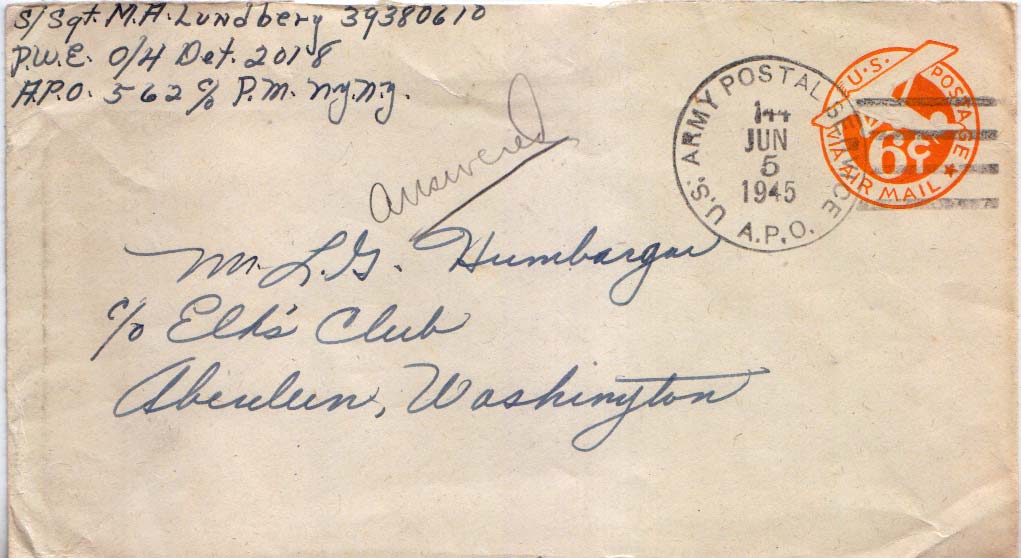 S/Sgt. M.A. Lundberg 39380610
P.W.E. O/H Det. 2018
A.P.O. 562 c/o P.M. N.Y. N.Y.
answered
U.S. ARMY POSTAL SERVICE
144
JUN
5
1945
A.P.O.
U.S. POSTAGE
6¢
VIA AIR MAIL
Mr. L.G. Humbargar
c/o Elk's Club
Aberdeen, Washington